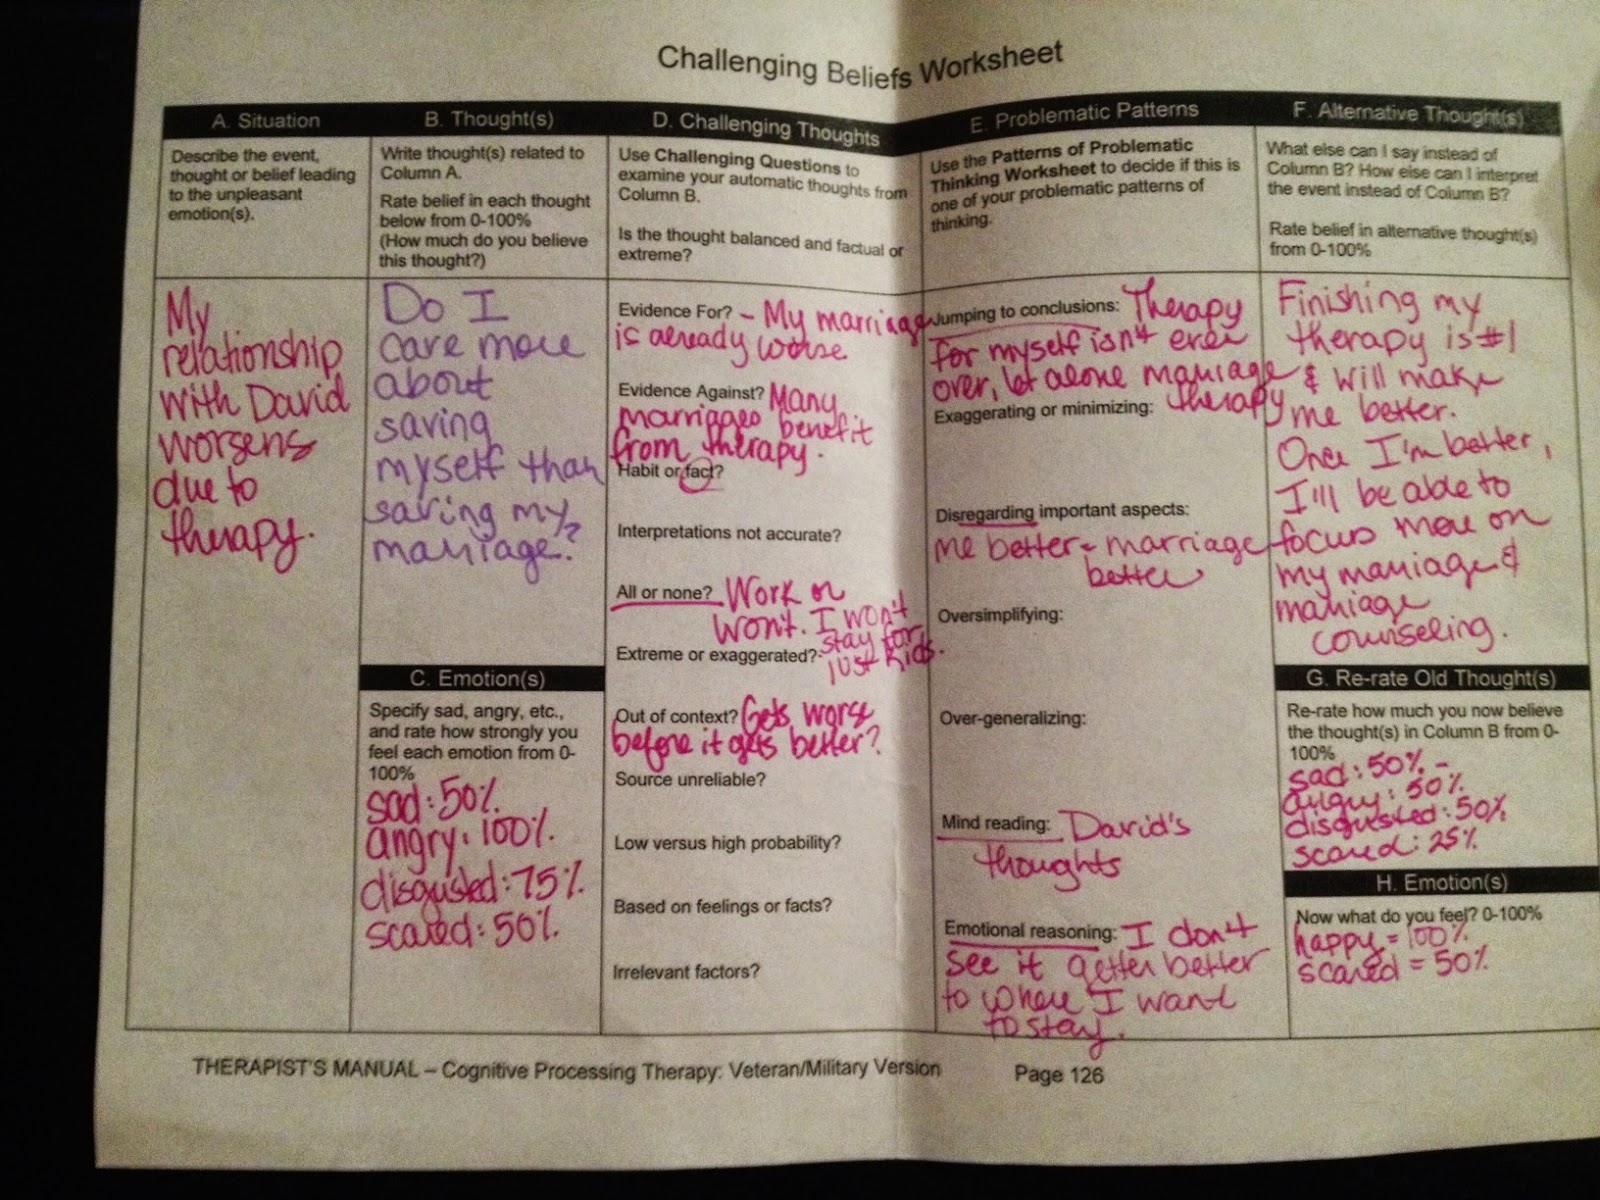 Challenging Beliefs Worksheet
A. Situation
Describe the event,
thought or belief leading
to the unpleasant
emotion(s).
My
relationship
with David
worsens
due to
therapy.
B. Thought(s)
Write thought(s) related to
Column A.
Rate belief in each thought
below from 0-100%
(How much do you believe
this thought?)
Do I
care more
about
saving
myself than
saving my
marriage?
C. Emotion(s)
Specify sad, angry, etc.,
and rate how strongly you
feel each emotion from 0-
100%
sad: 50%
angry: 100%
disgusted: 75%
scared: 50%
D. Challenging Thoughts
Use Challenging Questions to
examine your automatic thoughts from
Column B.
Is the thought balanced and factual or
extreme?
Evidence For? - My marriage
is already worse
Evidence Against? Many
marriages benefit
from therapy.
Habit or fact?
Interpretations not accurate?
All or none? Work or
won't. I won't
stay for
just kids.
Extreme or exaggerated?
Out of context? Gets worse
before it gets better?
Source unreliable?
Low versus high probability?
Based on feelings or facts?
Irrelevant factors?
E. Problematic Patterns
Use the Patterns of Problematic
Thinking Worksheet to decide if this is
one of your problematic patterns of
thinking.
Jumping to conclusions: Therapy
for myself isn't even
over, let alone marriage
therapy
Exaggerating or minimizing:
Disregarding important aspects:
me better = marriage
better
Oversimplifying:
Over-generalizing:
Mind reading: David's
thoughts
Emotional reasoning: I don't
see it getter better
to where I want
to stay.
F. Alternative Thought(s)
What else can I say instead of
Column B? How else can I interpret
the event instead of Column B?
Rate belief in alternative thought(s)
from 0-100%
Finishing my
therapy is #1
& will make
me better.
Once I'm better,
I'll be able to
focus more on
my marriage &
marriage
counseling.
G. Re-rate Old Thought(s)
Re-rate how much you now believe
the thought(s) in Column B from 0-
100%
sad: 50% -
angry: 50%
disgusted: 50%
scared: 25%
H. Emotion(s)
Now what do you feel? 0-100%
happy = 100%
scared = 50%
THERAPIST'S MANUAL – Cognitive Processing Therapy: Veteran/Military Version
Page 126